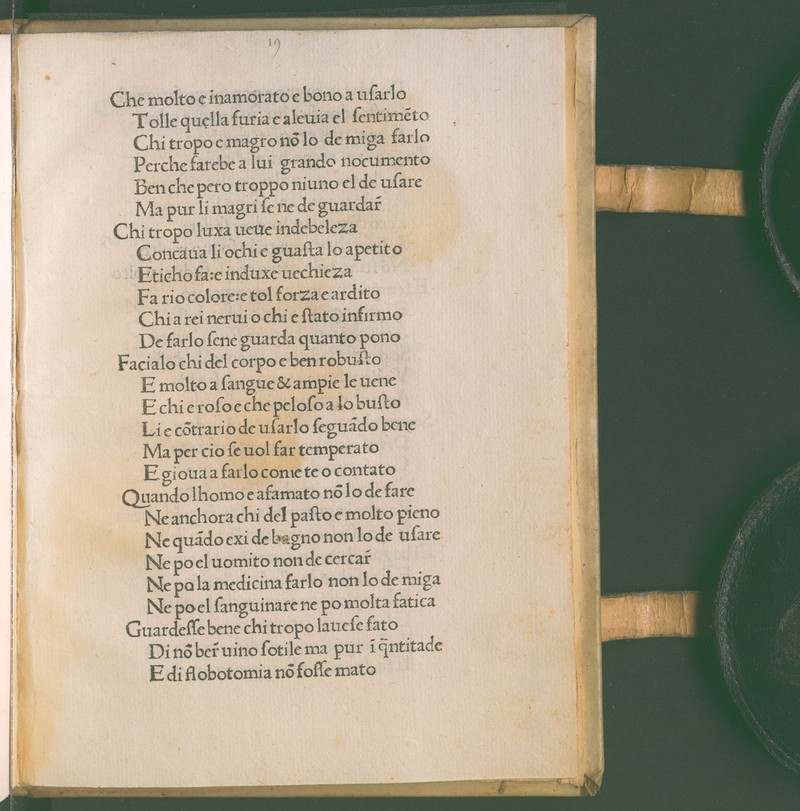 19
Che molto e inamorato e bono a uſarlo
Tolle quella furia e aleuia el ſentimẽto
Chi tropo e magro nõ lo de miga farlo
Perche farebe a lui grando nocumento
Ben che pero troppo niuno el de uſare
Ma pur li magri ſe ne de guardar̃
Chi tropo luxa ueue indebeleza
Concaua li ochi e guaſta lo apetito
Eticho fa:e induxe uechieza
Fa rio colore:e tol forza e ardito
Chi a rei nerui o chi e ſtato infirmo
De farlo ſene guarda quanto pono
Facialo chi del corpo e ben robuſto
E molto a ſangue & ampie le uene
E chi e roſo e che peloſo a lo buſto
Li e cõtrario de uſarlo ſeguãdo bene
Ma per cio ſe uol far temperato
E gioua a farlo come te o contato
Quando lhomo e afamato nõ lo de fare
Ne anchora chi del paſto e molto pieno
Ne quãdo exi de bagno non lo de uſare
Ne po el uomito non de cercar̃
Ne po la medicina farlo non lo de miga
Ne po el ſanguinare ne po molta fatica
Guardeſſe bene chi tropo laueſe fato
Di nõ ber̃ uino ſotile ma pur ĩ q̃ntitade
E di flobotomia nõ foſſe mato